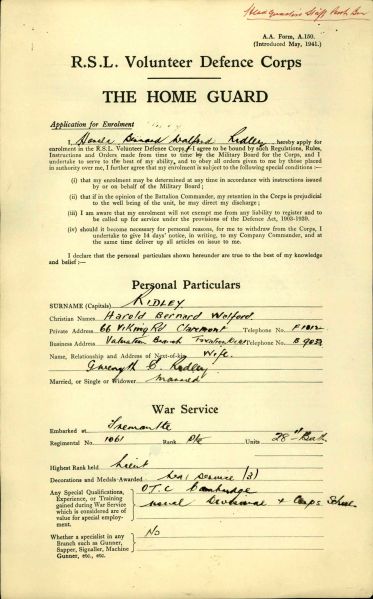 Head Quarters Staff Perth Bn
A.A. Form, A.150.
(Introduced May, 1941.)
R.S.L. Volunteer Defence Corps
THE HOME GUARD
Application for Enrolment
I, Harold Bernard Walford Ridley hereby apply for
enrolment in the R.S.L. Volunteer Defence Corps. I agree to be bound by such Regulations, Rules,
Instructions and Orders made from time to time by the Military Board for the Corps, and I
undertake to serve to the best of my ability, and to obey all orders given to me by those placed
in authority over me, I further agree that my enrolment is subject to the following special conditions :—
(i) that my enrolment may be determined at any time in accordance with instructions issued
by or on behalf of the Military Board ;
(ii) that if in the opinion of the Battalion Commander, my retention in the Corps is prejudicial
to the well being of the unit, he may direct my discharge ;
(iii) I am aware that my enrolment will not exempt me from any liability to register and to
be called up for service under the provisions of the Defence Act, 1903-1939.
(iv) should it become necessary for personal reasons, for me to withdraw from the Corps, I
undertake to give 14 days' notice, in writing, to my Company Commander, and at
the same time deliver up all articles on issue to me.
I declare that the personal particulars shown hereunder are true to the best of my knowledge
and belief :—
Personal Particulars
SURNAME (Capitals) RIDLEY
Christian Names Harold Bernard Walford
Private Address 66 Viking Rd Claremont Telephone No. F1012
Business Address Valuation Branch Taxation Dept Telephone No. B
Name, Relationship and Address of Next-of-kin Wife.
Gwenyth Ridley
Married, or Single or Widower Married
War Service
Embarked at Fremantle
Regimental No. 1061 Rank Pte Units 28th Batt
Highest Rank held Lieut
Decorations and Medals Awarded service (3)
Any Special Qualifications,
Experience, or Training
gained during War Service
which is considered are of
value for special employ-
ment.
O.T.C Cambridge
usual Divisional + Corps School
Whether a specialist in any
Branch such as Gunner,
Sapper, Signaller, Machine
Gunner, etc., etc.
No